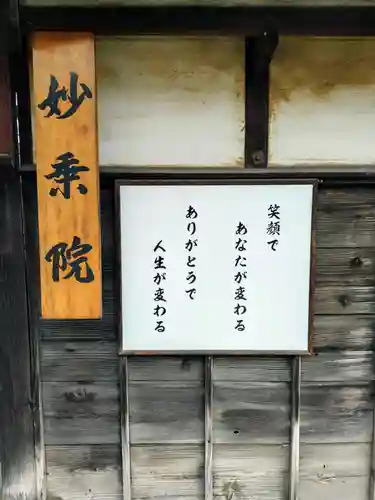 笑顔で
あなたが変わる
ありがとうで
人生が変わる
妙乗院